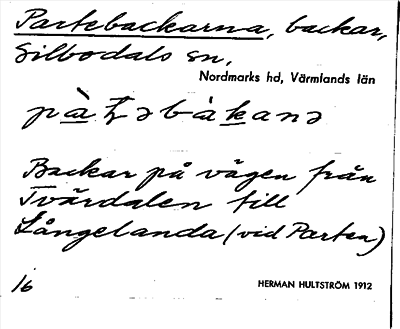 Partebackarna, backar,
Silbodals sn,
Nordmarks hd, Värmlands län
pàt̲əbàkanə
Backar på vägen från
Tvärdalen till
Långelanda (vid Parten)
16
HERMAN HULTSTRÖM 1912